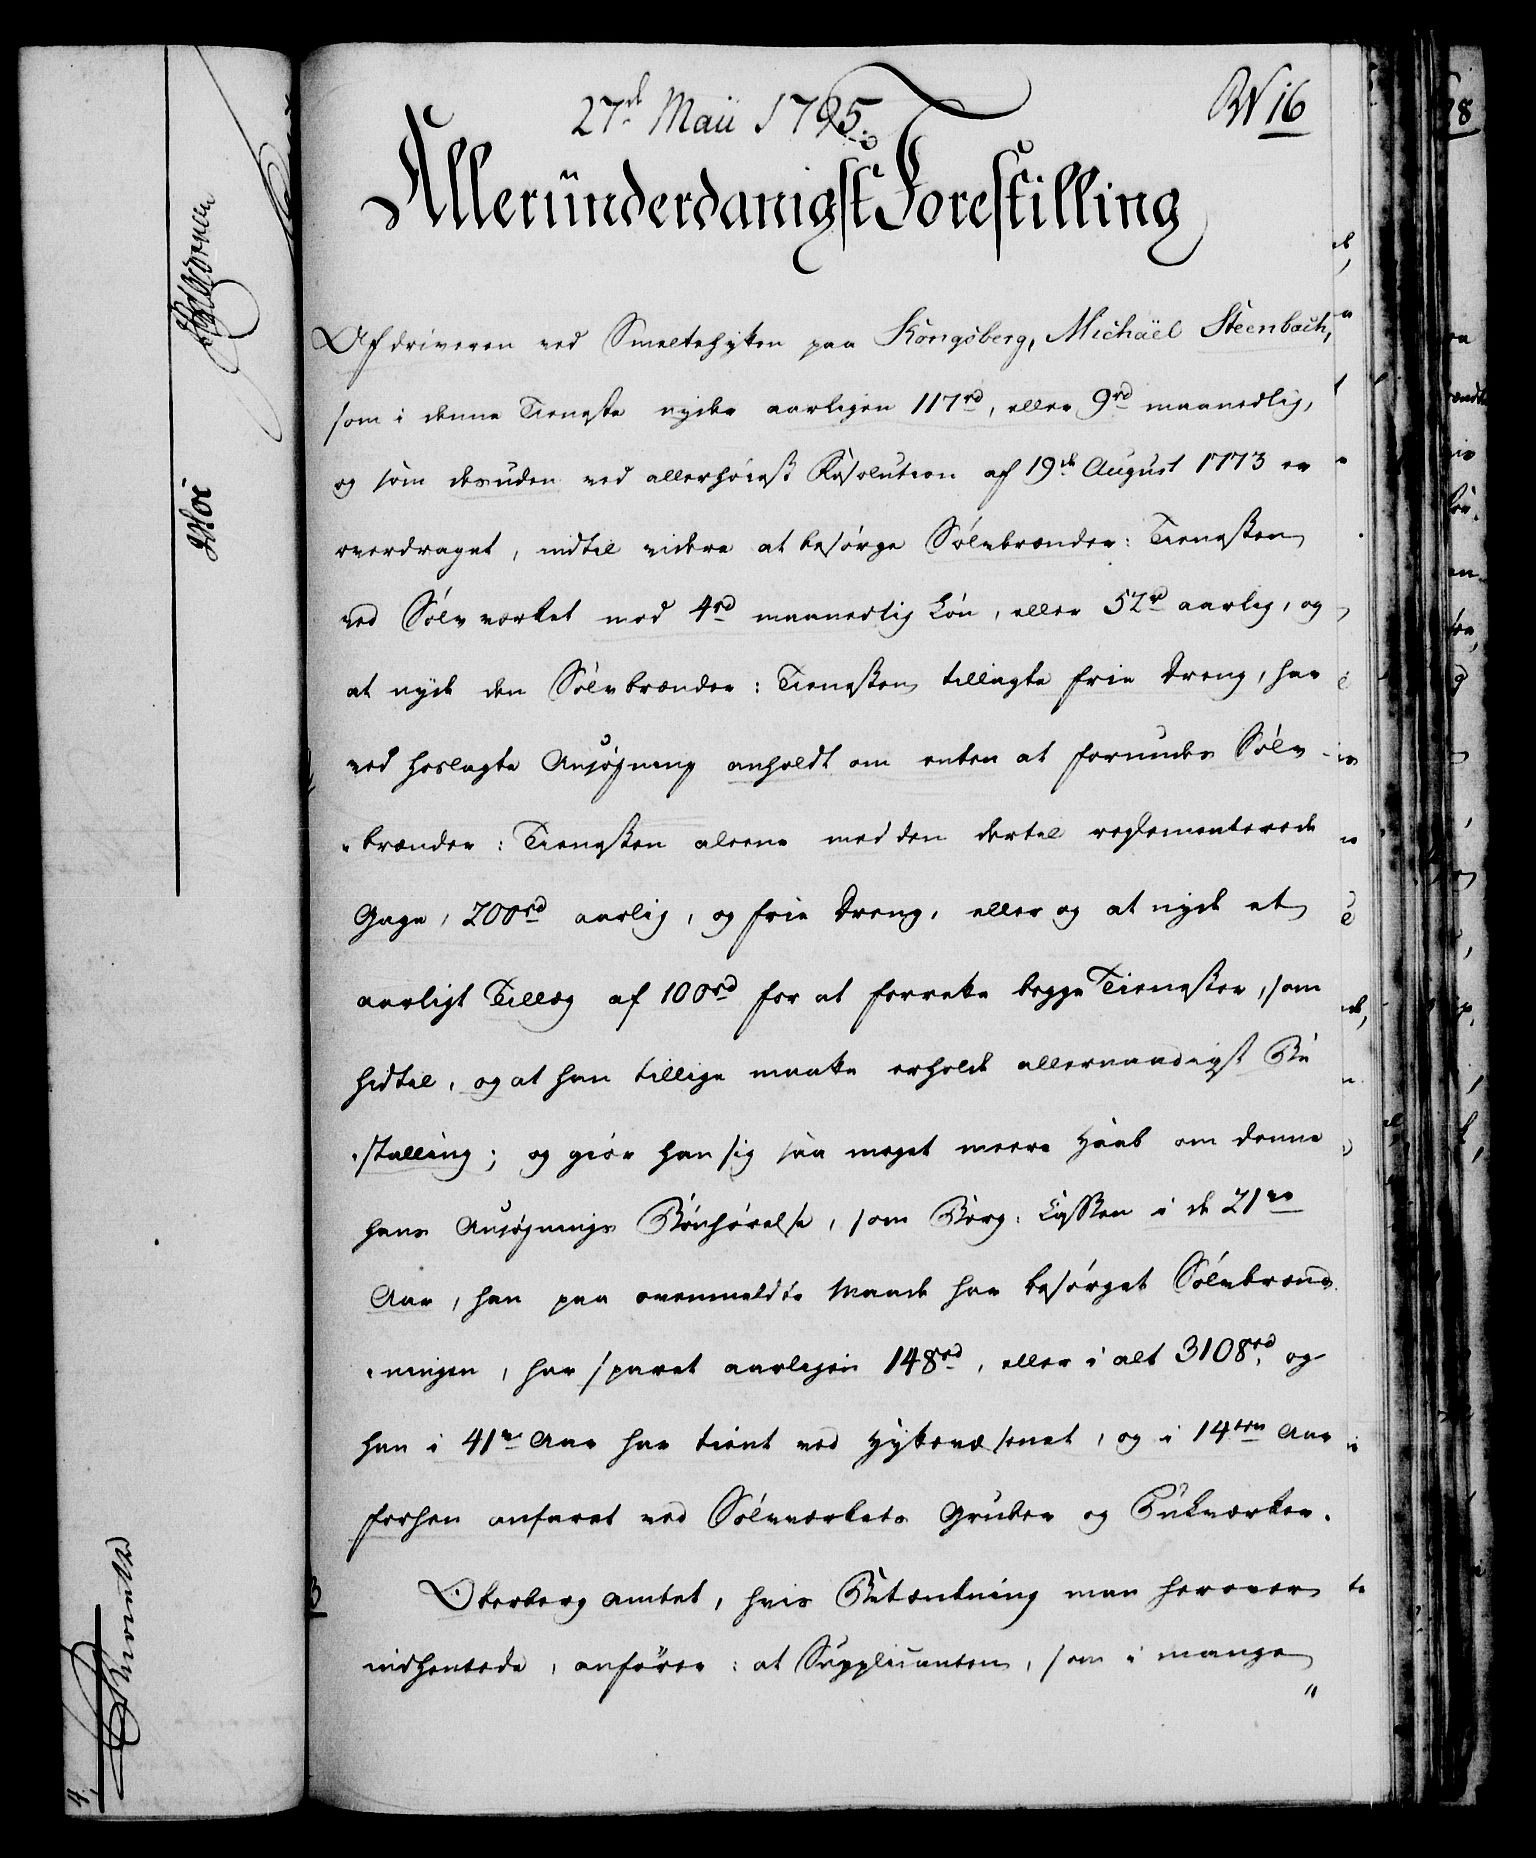 27de Maii 1795.
N 16
Alleründerdanigst Forestilling
Afdriveren ved Smeltehytten paa Kongsberg, Michaël Steenbach,
som i denne Tieneste nyder aarligen 117rd, eller 9rd maanedlig,
og som desuden ved allerhöieste Resolution af 19de August 1773 er
overdraget, indtil videre at besörge Sölvbrænder: Tienesten
ved Sölvværket med 4rd maanedlig Lön, eller 52rd aarlig, og
at nyde den Sölvbrænder: Tienesten tillagte frie Dreng, har
ved hoslagte Ansögning anholdt om enten at forundes Sölv-
brænder: Tienesten aleene med den dertil reglementerede
Gage, 200rd aarlig, og frie Dreng, eller og at nyde et
aarligt Tillæg af 100rd for at forrette begge Tienester, som
hidtil, og at han tillige maatte erholde allernaadigst Be
stalling; og giör han sig saa meget meere Haab om denne
hans Ansögnings Bönhörelse, som Berg: Cassen i de 21ve
Aar, han paa ovenmeldte Maade har besörget Sölvbrænd
ningen, har sparet aarligen 148rd, eller i alt 3108rd, og
han i 41 Aar har tient ved Hyttevæsenet, og i 14ten Aar
forhen anfaret ved Sölvværkets Gruber og Pukværker.
Oberberg amtet, hvis Betænkning man herover
indhentede, anförer: at Supplicanten, som i mange